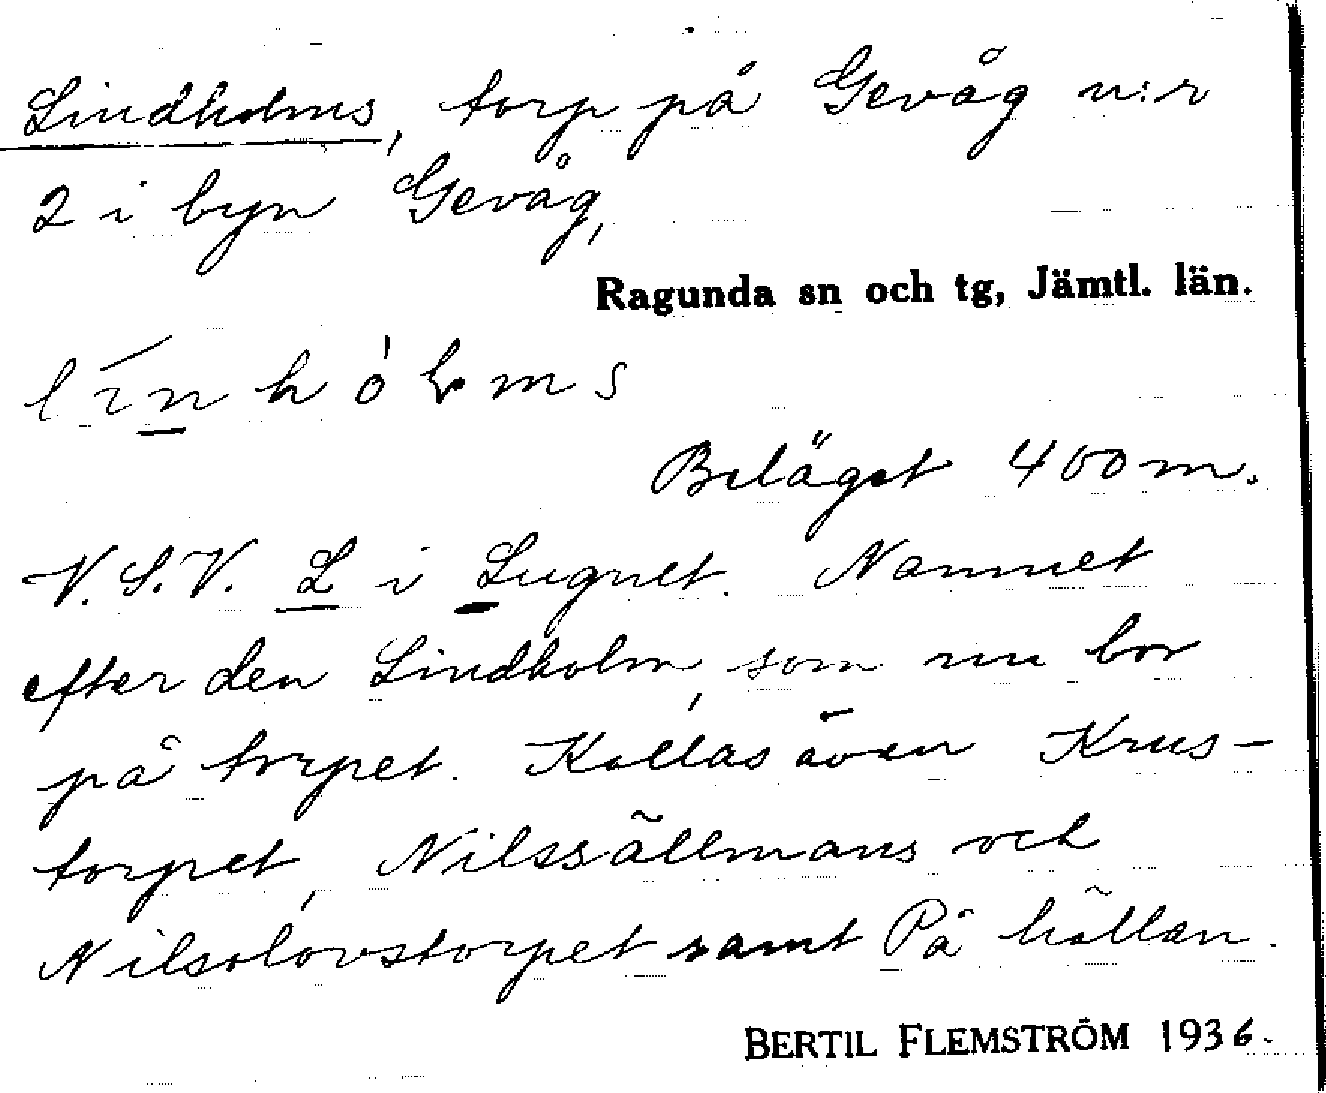 Lindholms, torp på Gevåg n:r
2 i byn Gevåg,
Ragunda sn och tg, Jämtl. län.
Beläget 400 m.
V.S.V. L i Lugnet. Namnet
efter den Lindholm, som nu bor
på torpet. Kallas även Krus-
torpet, Nilssällmans och
Nilsolovstorpet samt På hällan.
BERTIL FLEMSTRÖM 1936.